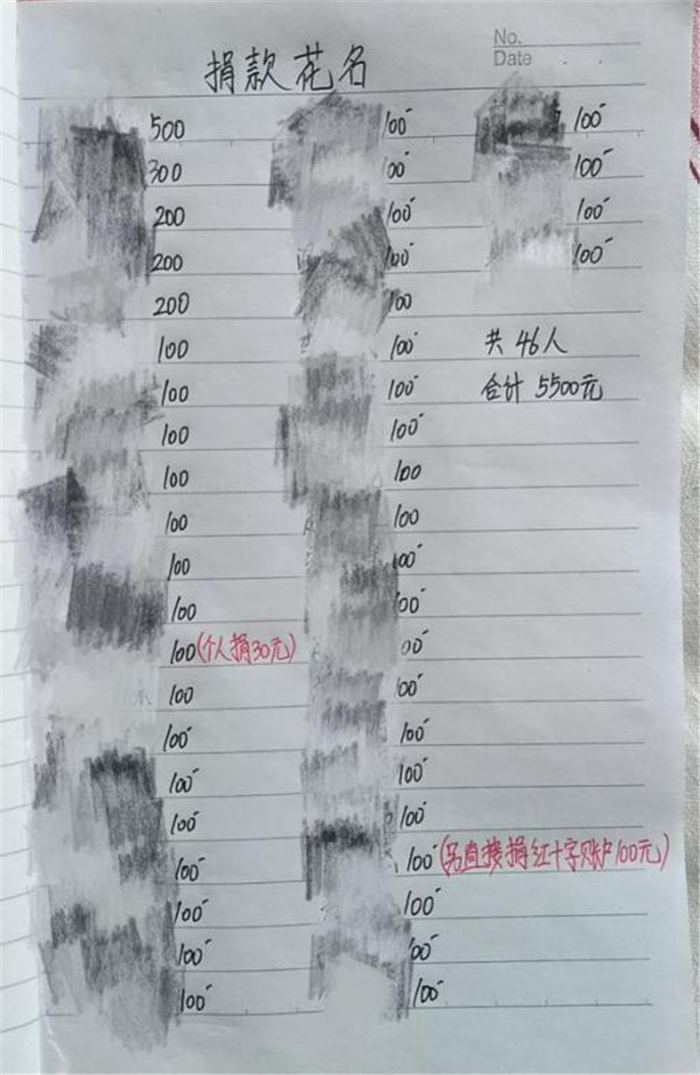 No.
Date
捐款花名
500
300
200
200
200
100
100
100
100
100
100
100
100(个人捐30元)
100
100
100
100
100
100
100
100
100
100
100
100
100
100
100
100
100
100
100
100
100
100
100
100
100
100(另直接捐红十字账户100元)
100
100
100
100
100
100
100
共46人
合计 5500元